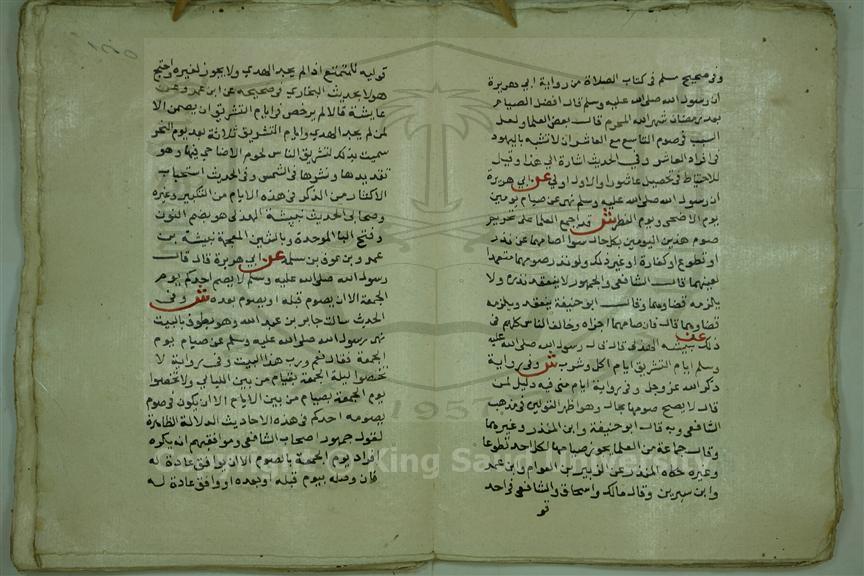 وفي صحيح مسلم في كتاب الصلاة من رواية ابي هريرة
ان رسول الله صلى الله عليه وسلم قال افضل الصيام
بعد رمضان شهر الله المحرم قال بعض العلما ولعل
السبب في صوم التاسع مع العاشر ان لا تشبه باليهود
في افراد العاشر وفي الحديث اشارة الى هذا وقيل
للاحتياط في تحصيل عاشورا والاول اولى عن ابي هريرة
ان رسول الله صلى الله عليه وسلم نهى عن صيام يومين
يوم الاضحى ويوم الفطر ش قد اجمع العلما على تحريم
صوم هذين اليومين بكل حال سوا صامهما عن نذر
او تطوع او كفارة او غير ذلك ولو نذر صومهما متعمدا
لعينهما قال الشافعي والجمهور لا ينعقد نذره ولا
يلزمه قضاوهما وقال ابو حنيفة ينعقد ويلزمه
قضاوهما قال فان صامهما اجزاه وخالف الناس كلهم في
ذلك عن نبيشة الهذلي قال قال رسول الله صلى الله عليه
وسلم ايام التشريق ايام اكل وشرب ش وفي رواية
ذكر الله عز وجل وفي رواية ايام منى فيه دليل لمن
قال لا يصح صومها بحال وهو اظهر القولين في مذهب
الشافعي وبه قال ابو حنيفة وابن المنذر وغيرهما
وقال جماعة من العلما يجوز صيامها لكل احد تطوعا
وغيره حكاه المنذر عن الزبير بن العوام وابن عمر
وابن سيرين وقال مالك واسحاق والشافعي في احد
قو
قوليه للمتمتع اذا لم يجد الهدي ولا يجوز لغيره واحتج
هولا بحديث البخاري في صحيحه عن ابن عمر وعن
عايشة قالا لم يرخص في ايام التشريق ان يصمن الا
لمن لم يجد الهدي وايام التشريق ثلاثة بعد يوم النحر
سميت بذلك لتشريق الناس لحوم الاضاحي فيها وهو
تقديدها ونشرها في الشمس وفي الحديث استحباب
الاكثار من الذكر في هذه الايام من التكبير وغيره
وصحابي الحديث نبيشة الهذلي هو بضم النون
وفتح البا الموحدة وبالشين المعجمة نبيشة بن
عمرو بن عوف بن سلمة عن ابي هريرة قال قال
رسول الله صلى الله عليه وسلم لا يصم احدكم يوم
الجمعة الا ان يصوم قبله او يصوم بعده ش وفي
الحديث سالت جابر بن عبد الله وهو يطوف بالبيت
نهى رسول الله صلى الله عليه وسلم عن صيام يوم
الجمعة فقال نعم ورب هذا البيت وفي رواية لا
تختصوا ليلة الجمعة بقيام من بين الليالي ولا تختصوا
يوم الجمعة بصيام من بين الايام الا ان يكون في صوم
يصومه احدكم في هذه الاحاديث الدلالة الظاهرة
لقول جمهور اصحاب الشافعي وموافقيهم انه يكره
افراد يوم الجمعة بالصوم الا ان يوافق عادة له
فان وصله بيوم قبله او بعده او وافق عادة له
Copyright © King Saud University
1957